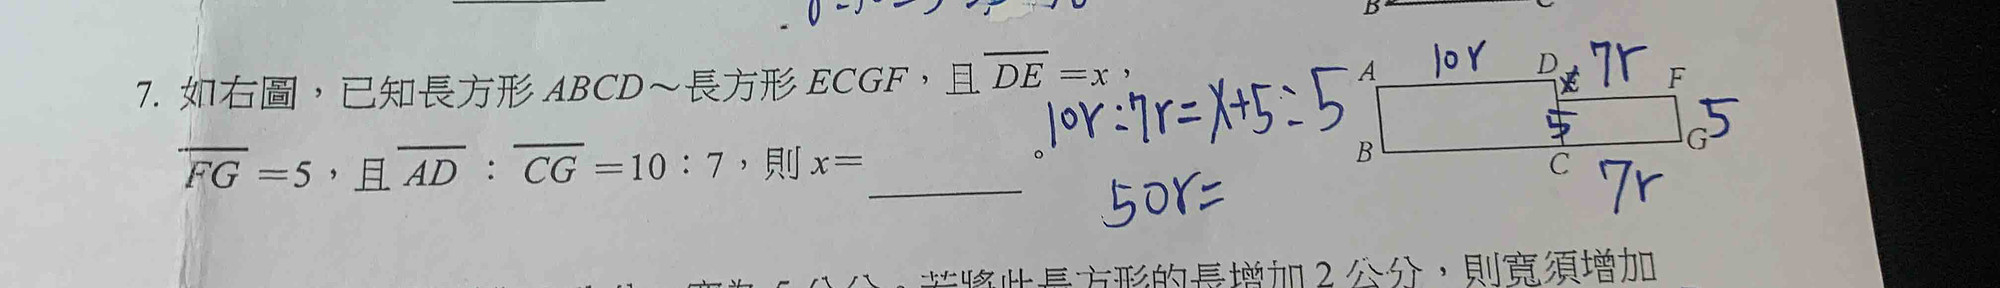 7. 如右圖，已知長方形 ABCD～長方形 ECGF，且 DE =x，
FG =5，且 AD : CG =10：7，則 x=______。
10r:7r=x+5:5
50r=
A 10r D x 7r F
5 G 5
B C
7r
公分。若將此長方形的長增加 2 公分，則寬須增加